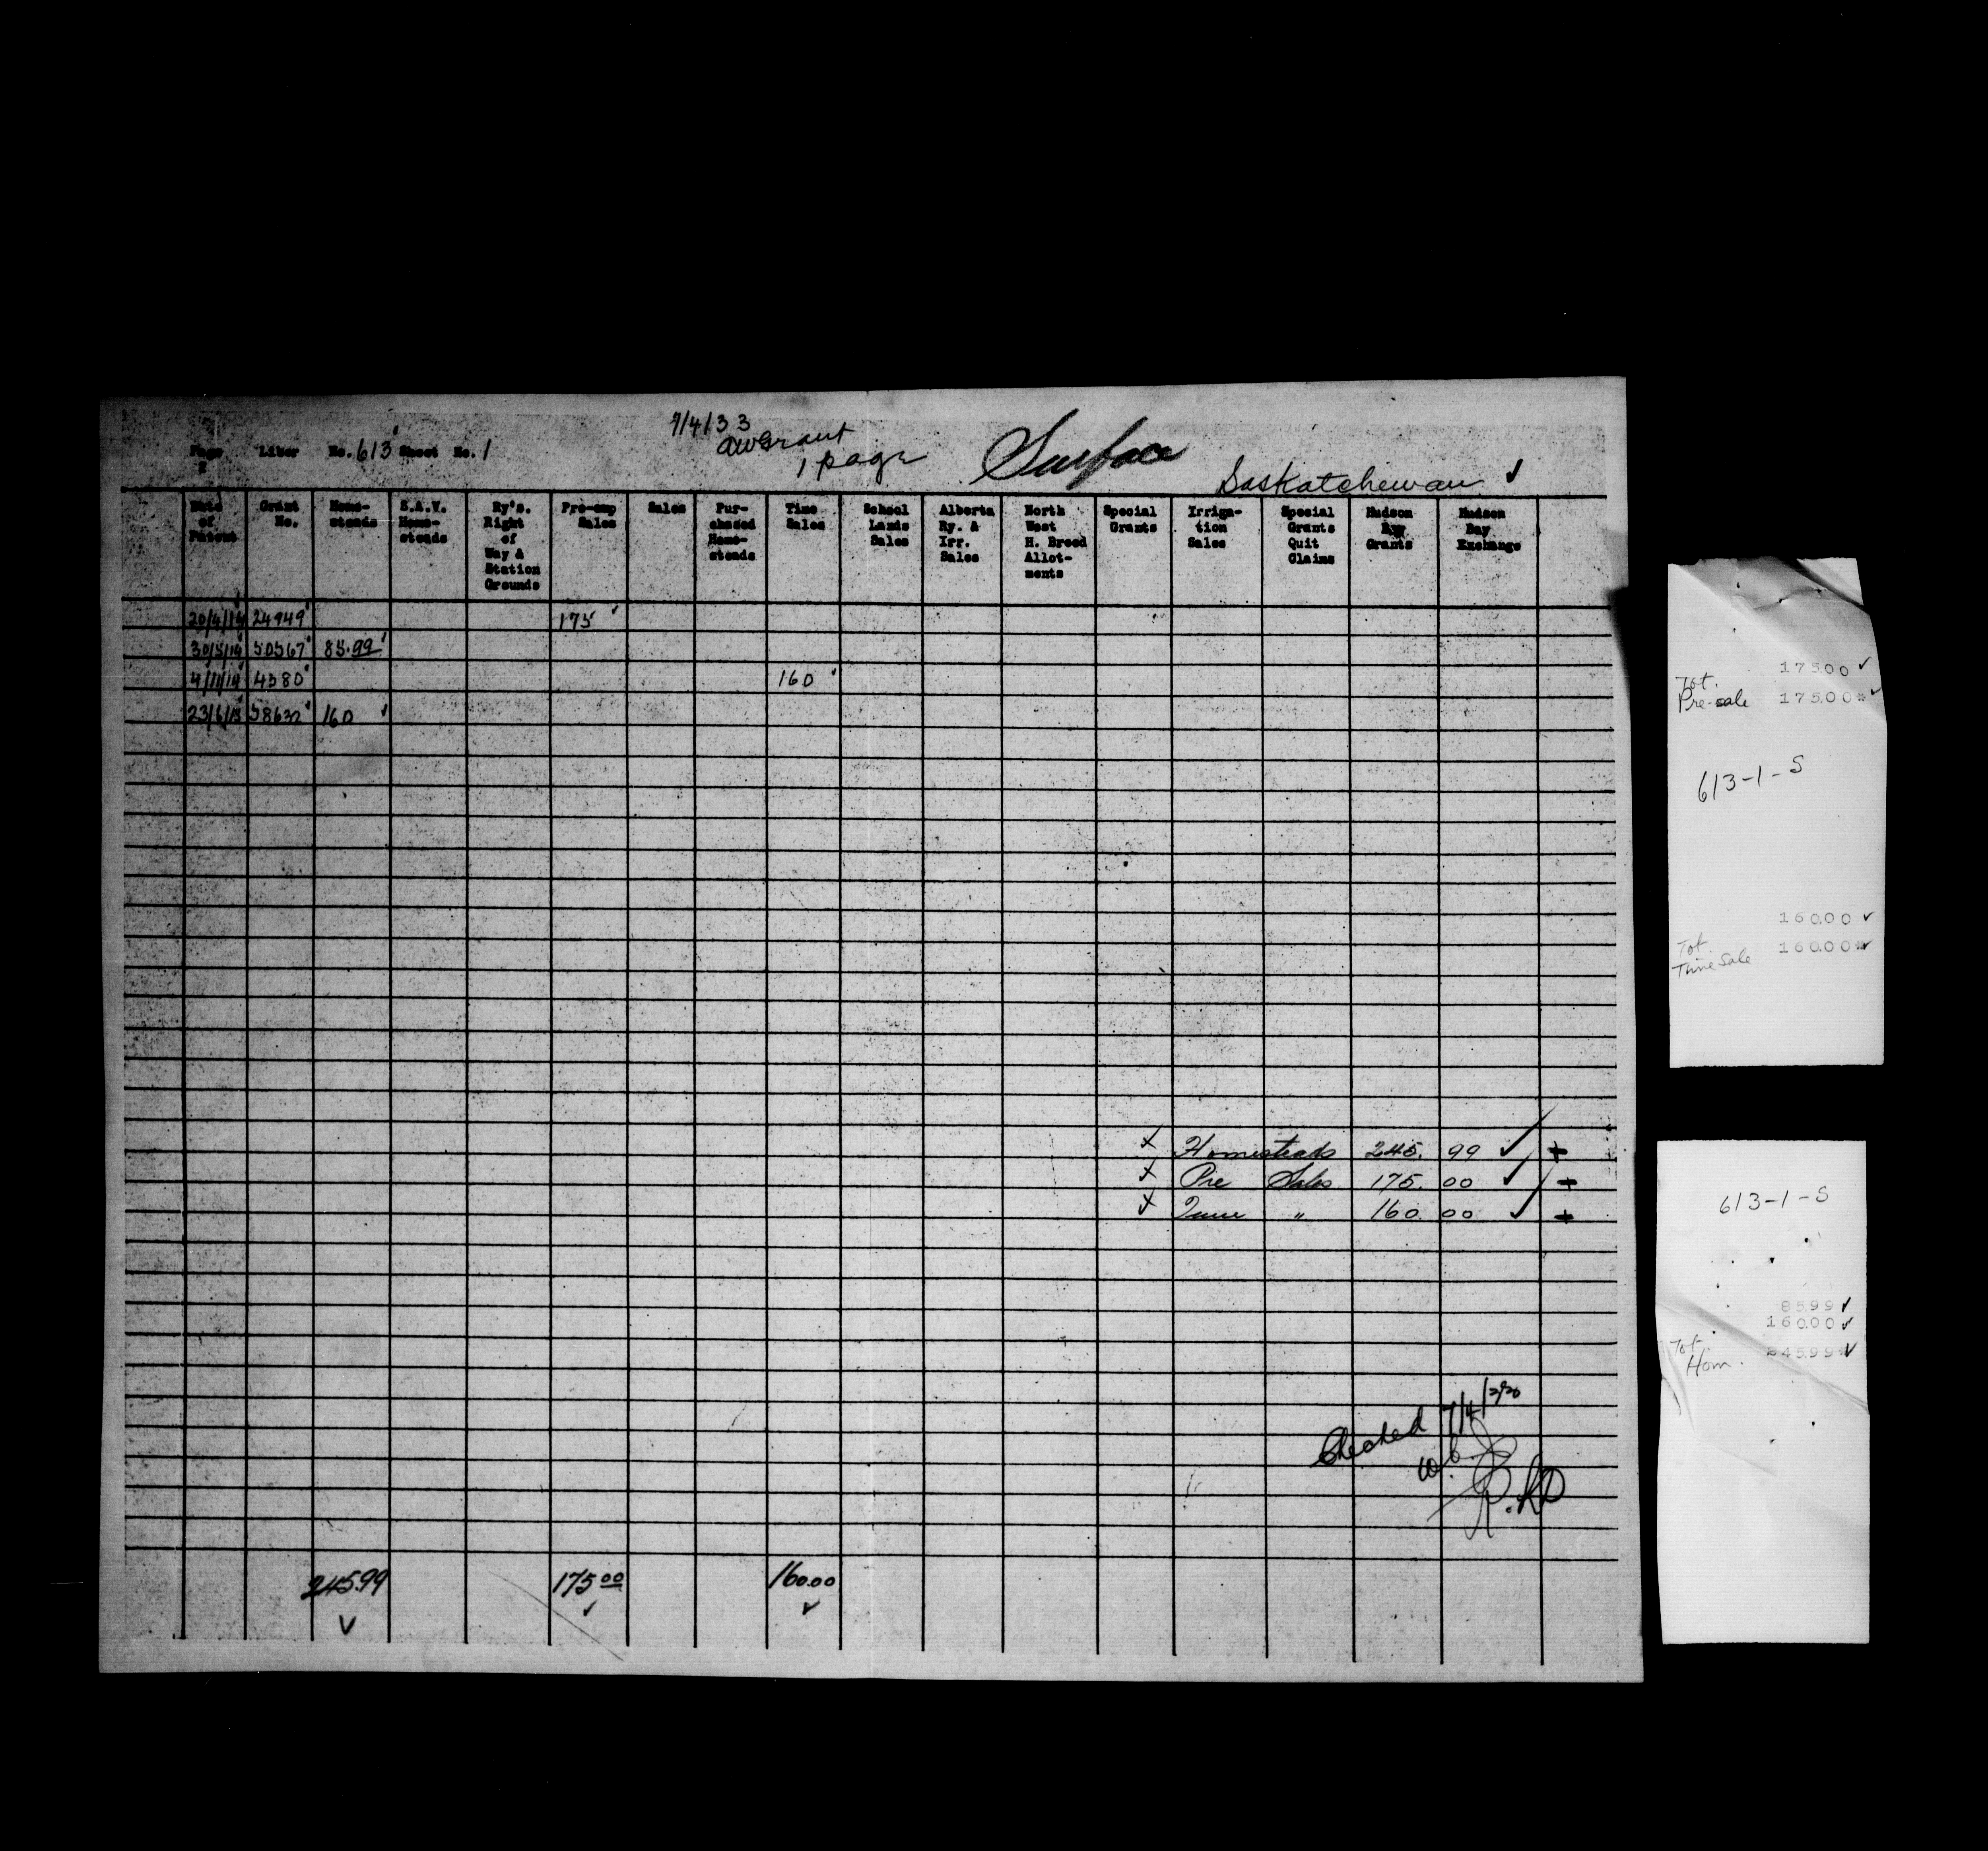 7/4/33
AWGrant
1 page
Surface
Page Liber No. 613 Sheet No. 1
Saskatchewan ✓
Date of Patent
Grant No.
Home-steads
S.A.V. Home-steads
Ry's. Right of Way & Station Grounds
Pre-emp Sales
Sales
Pur-chased Home-steads
Time Sales
School Lands Sales
Alberta Ry. & Irr. Sales
North West H. Breed Allot-ments
Special Grants
Irriga-tion Sales
Special Grants Quit Claims
Hudson Bay Grants
Hudson Bay Exchange
20/4/14 24949 175
30/5/14 50567 85.99
4/11/14 4380 160
23/6/15 58632 160
x Homesteads 245. 99 ✓
x Pre Sales 175. 00 ✓
x Time " 160. 00 ✓
Checked 7/4/
245.99 175 00 160.00
✓ ✓ ✓
175.00 ✓
Tot.
Pre-sale 175.00 * ✓
613-1-S
160.00 ✓
Tot.
Time Sale 160.00 * ✓
613-1-S
85.99 ✓
160.00 ✓
Tot.
Hom. 245.99 * ✓